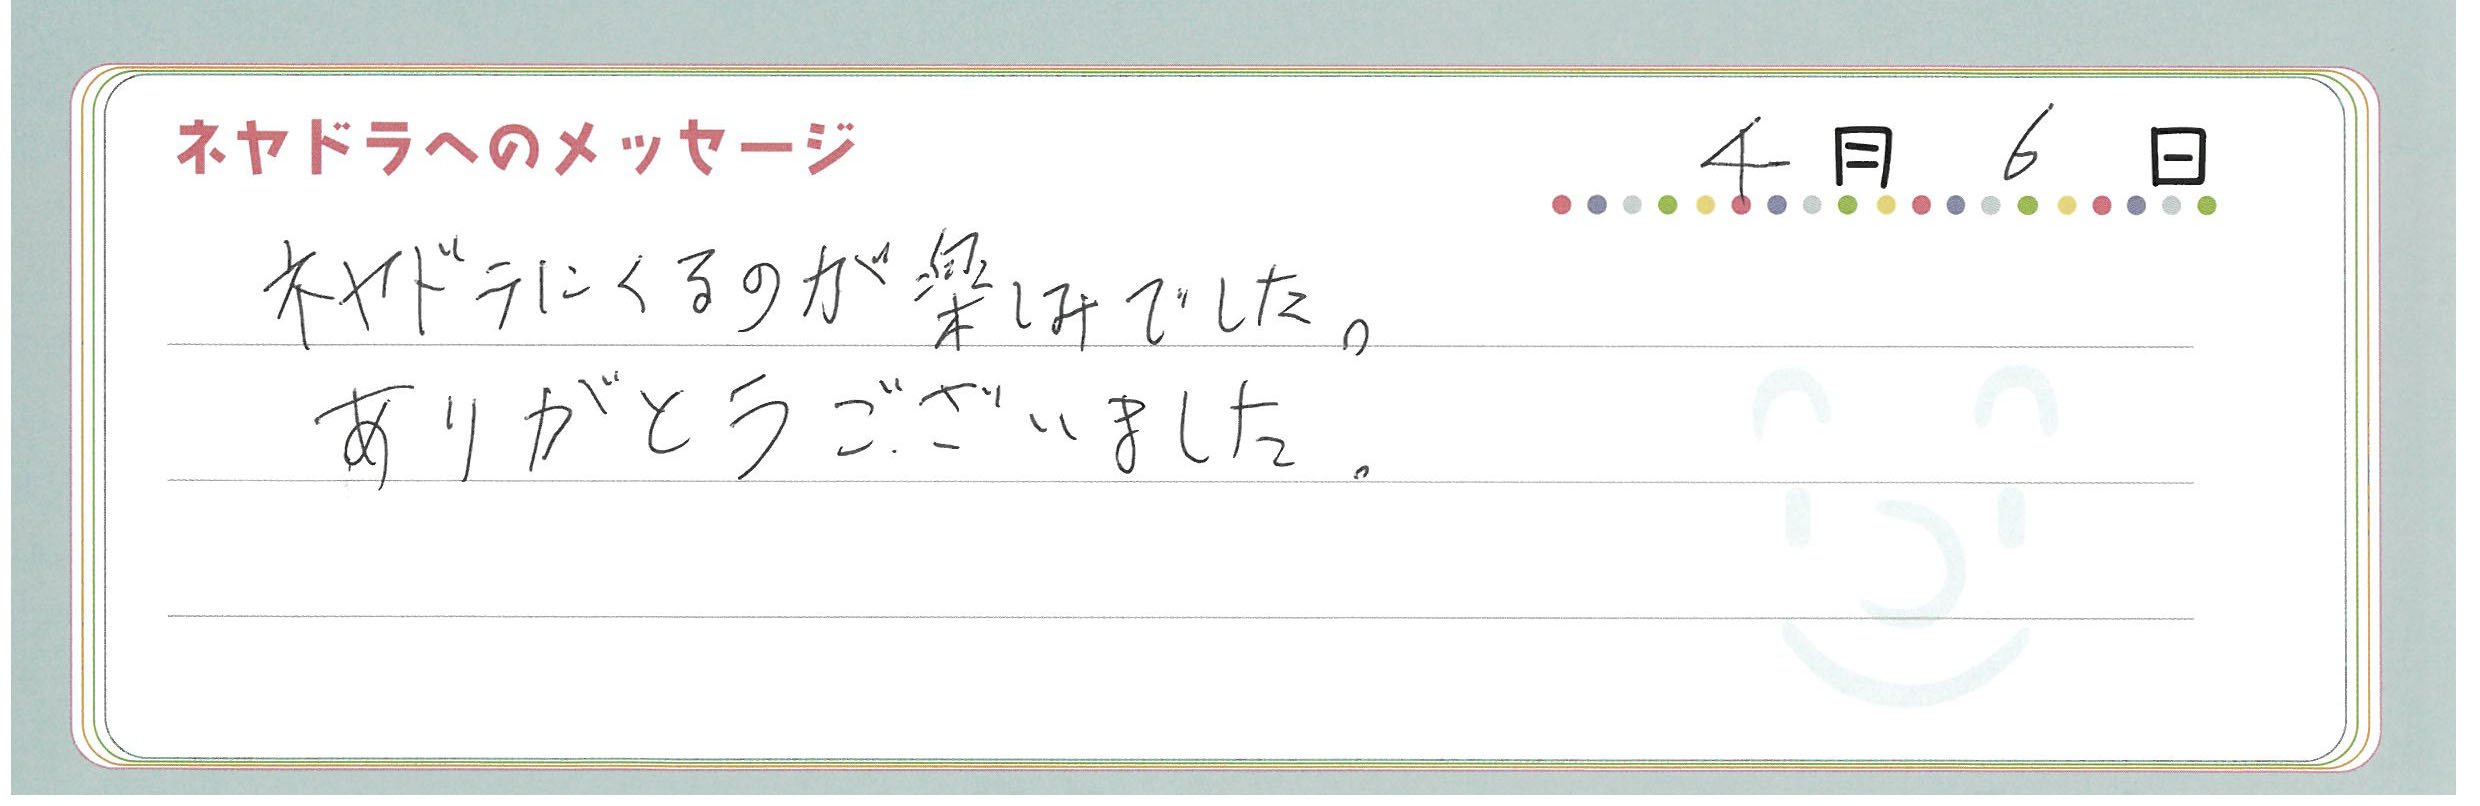 ネヤドラへのメッセージ
4月6日
ネヤドラにくるのが楽しみでした。
ありがとうございました。